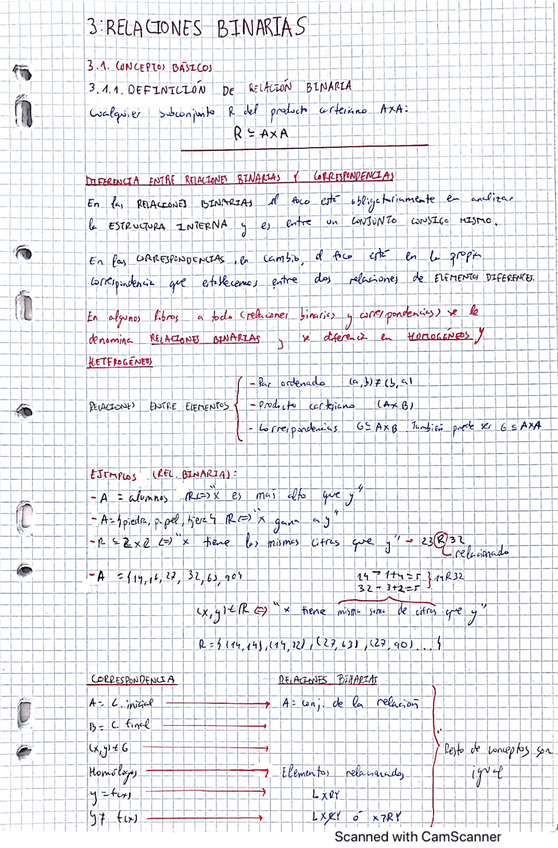 3: RELACIONES BINARIAS
3.1. CONCEPTOS BÁSICOS
3.1.1. DEFINICIÓN DE RELACIÓN BINARIA
Cualquier subconjunto R del producto cartesiano AxA:
R ⊆ AxA
DIFERENCIA ENTRE RELACIONES BINARIAS Y CORRESPONDENCIAS
En las RELACIONES BINARIAS el foco está obligatoriamente en analizar
la ESTRUCTURA INTERNA y es entre un CONJUNTO CONSIGO MISMO.
En las CORRESPONDENCIAS, en cambio, el foco está en la propia
correspondencia que establecemos entre dos relaciones de ELEMENTOS DIFERENTES.
En algunos libros a todo (relaciones binarias y correspondencias) se le
denomina RELACIONES BINARIAS y se diferencia en HOMOGÉNEOS Y
HETEROGÉNEOS
RELACIONES ENTRE ELEMENTOS
- Par ordenado (a,b) ≠ (b,a)
- Producto cartesiano (AxB)
- Correspondencias G ⊆ AxB También puede ser G ⊆ AxA
EJEMPLOS (REL. BINARIA):
- A = alumnos R⇔ "x es mas alto que y"
- A = {piedra, papel, tijera} R⇔ "x gana a y"
- R ⊆ ZxZ ⇔ "x tiene las mismas cifras que y" → 23 R 32
relacionado
- A = {14, 16, 27, 32, 63, 90}
14 → 1+4=5
32 → 3+2=5
14R32
(x,y) ∈ R ⇔ "x tiene misma suma de cifras que y"
R = {(14,14), (14,32), (27,63), (27,90) ...}
CORRESPONDENCIA RELACIONES BINARIAS
A = C. inicial → A = conj. de la relación
B = C. final →
(x,y) ∈ G →
Homólogos → Elementos relacionados
y = f(x) → xRY
y ≠ f(x) →
Resto de conceptos son
igual
Scanned with CamScanner